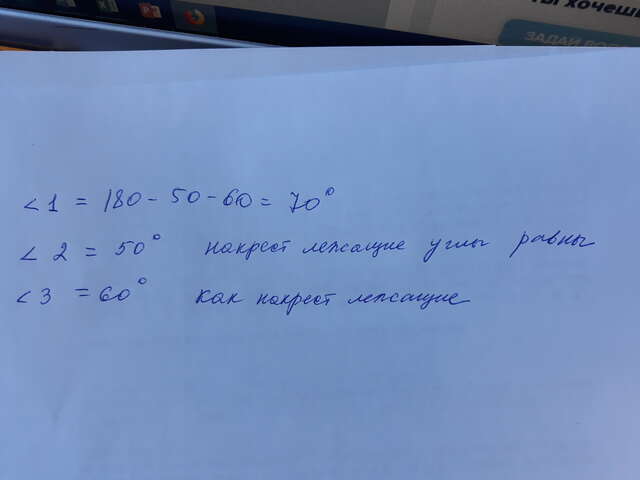 < 1 = 180 - 50 - 60 = 70°
< 2 = 50° накрест лежащие углы равны
< 3 = 60° как накрест лежащие
ЗАДАЙ
ты хочешь